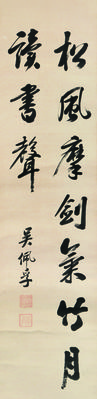 松風摩劍氣竹月
讀書聲
吳佩孚